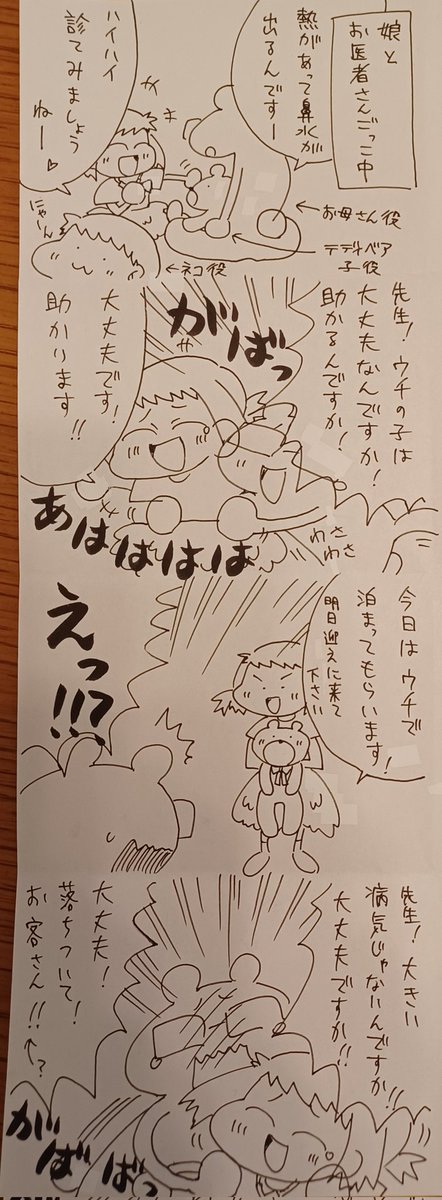 娘と
お医者さんごっこ中
熱があって鼻水が
出るんですー
ハイハイ
診てみましょう
ねー♡
←お母さん役
テディベア
子役
にゃーん
←ネコ役
先生!ウチの子は
大丈夫なんですか!
助かるんですか!
がばっ
大丈夫です!
助かります!!
あはははは
わさ
わさ
今日はウチで
泊まってもらいます!
明日迎えに来て
下さい
えっ!!?
先生!大きい
病気じゃないんですか!!
大丈夫ですか!!
大丈夫!
落ちついて!
お客さん!!←?
がばばっ